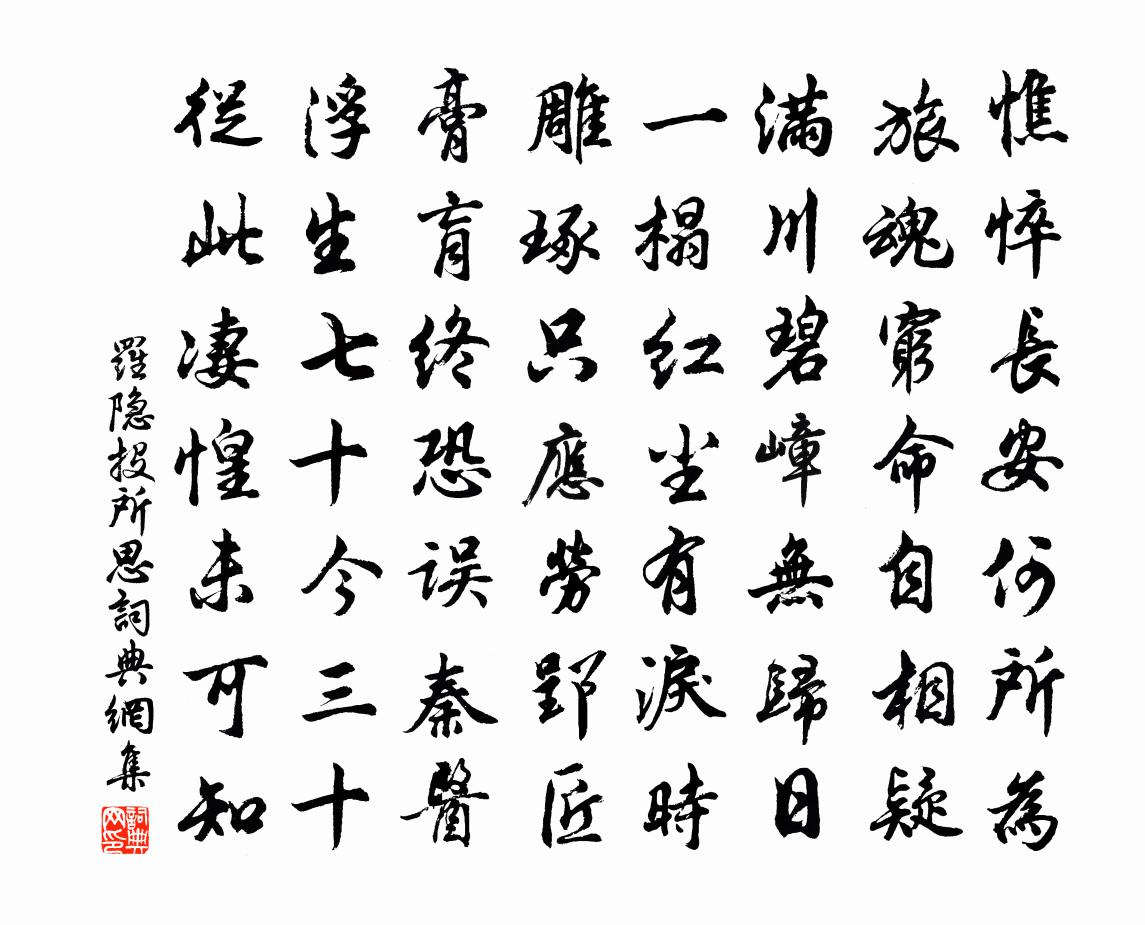 憔悴長安何所為
旅魂窮命自相疑
滿川碧嶂無歸日
一榻紅尘有淚時
雕琢只應勞郢匠
膏肓終恐误秦醫
浮生七十今三十
從此凄惶未可知
羅隐投所思詞典網集
詞典
网印